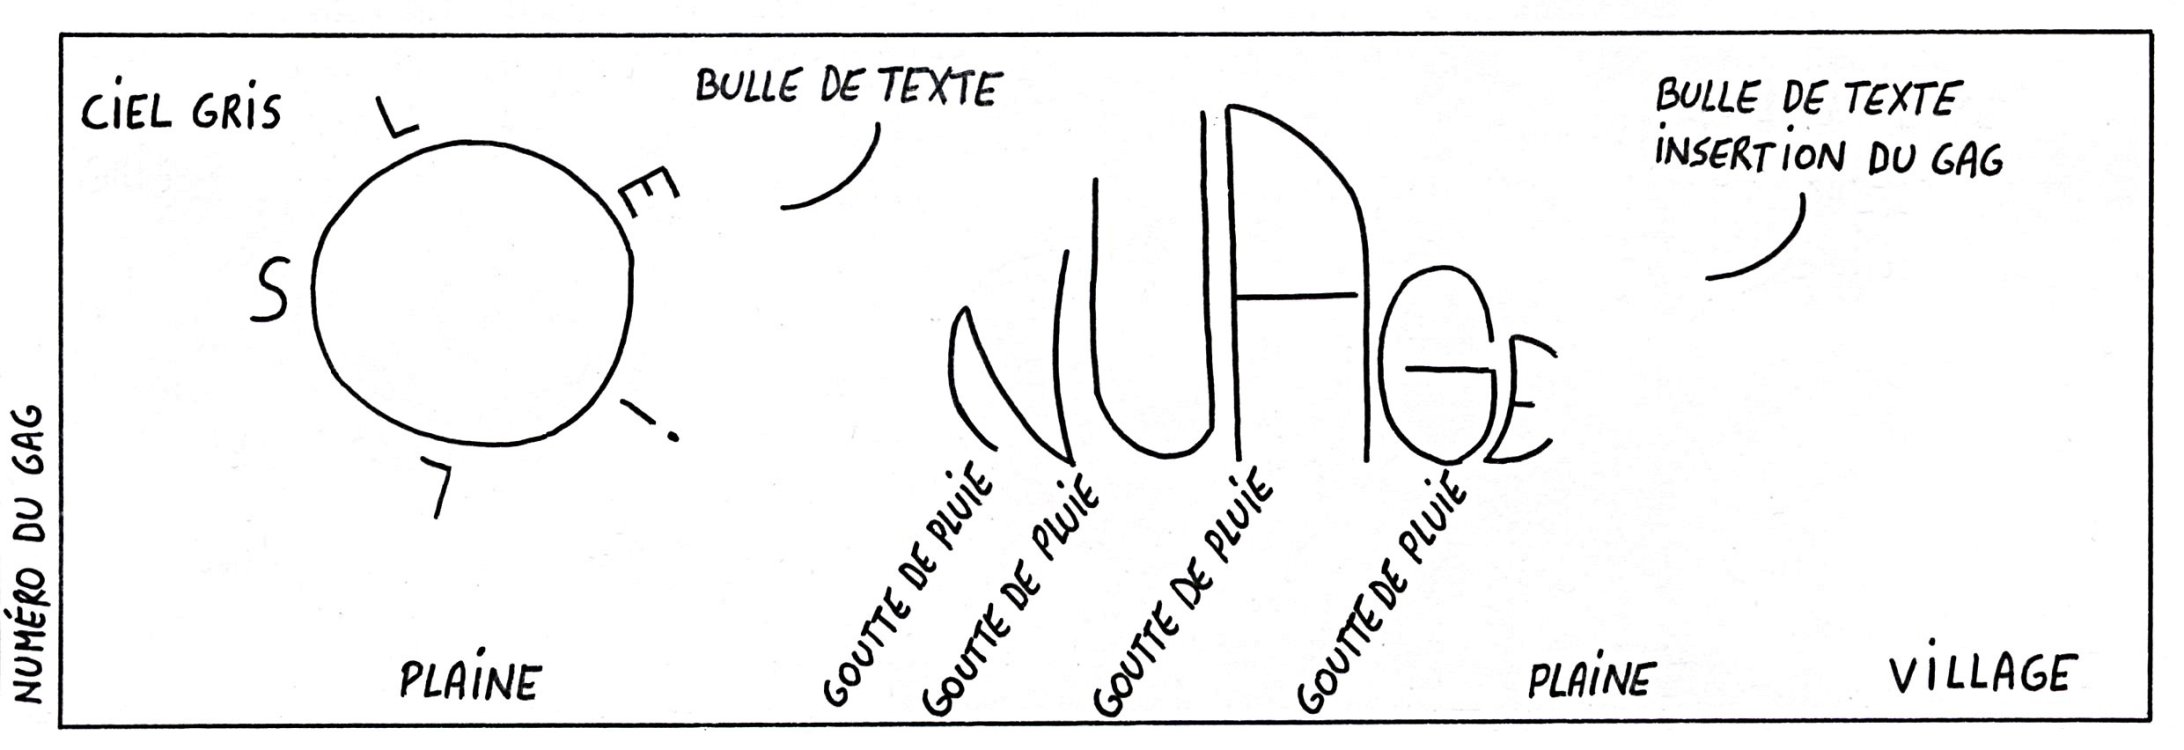 CIEL GRIS
SOLEIL
BULLE DE TEXTE
NUAGE
BULLE DE TEXTE
INSERTION DU GAG
GOUTTE DE PLUIE
GOUTTE DE PLUIE
GOUTTE DE PLUIE
GOUTTE DE PLUIE
PLAINE
PLAINE
VILLAGE
NUMÉRO DU GAG